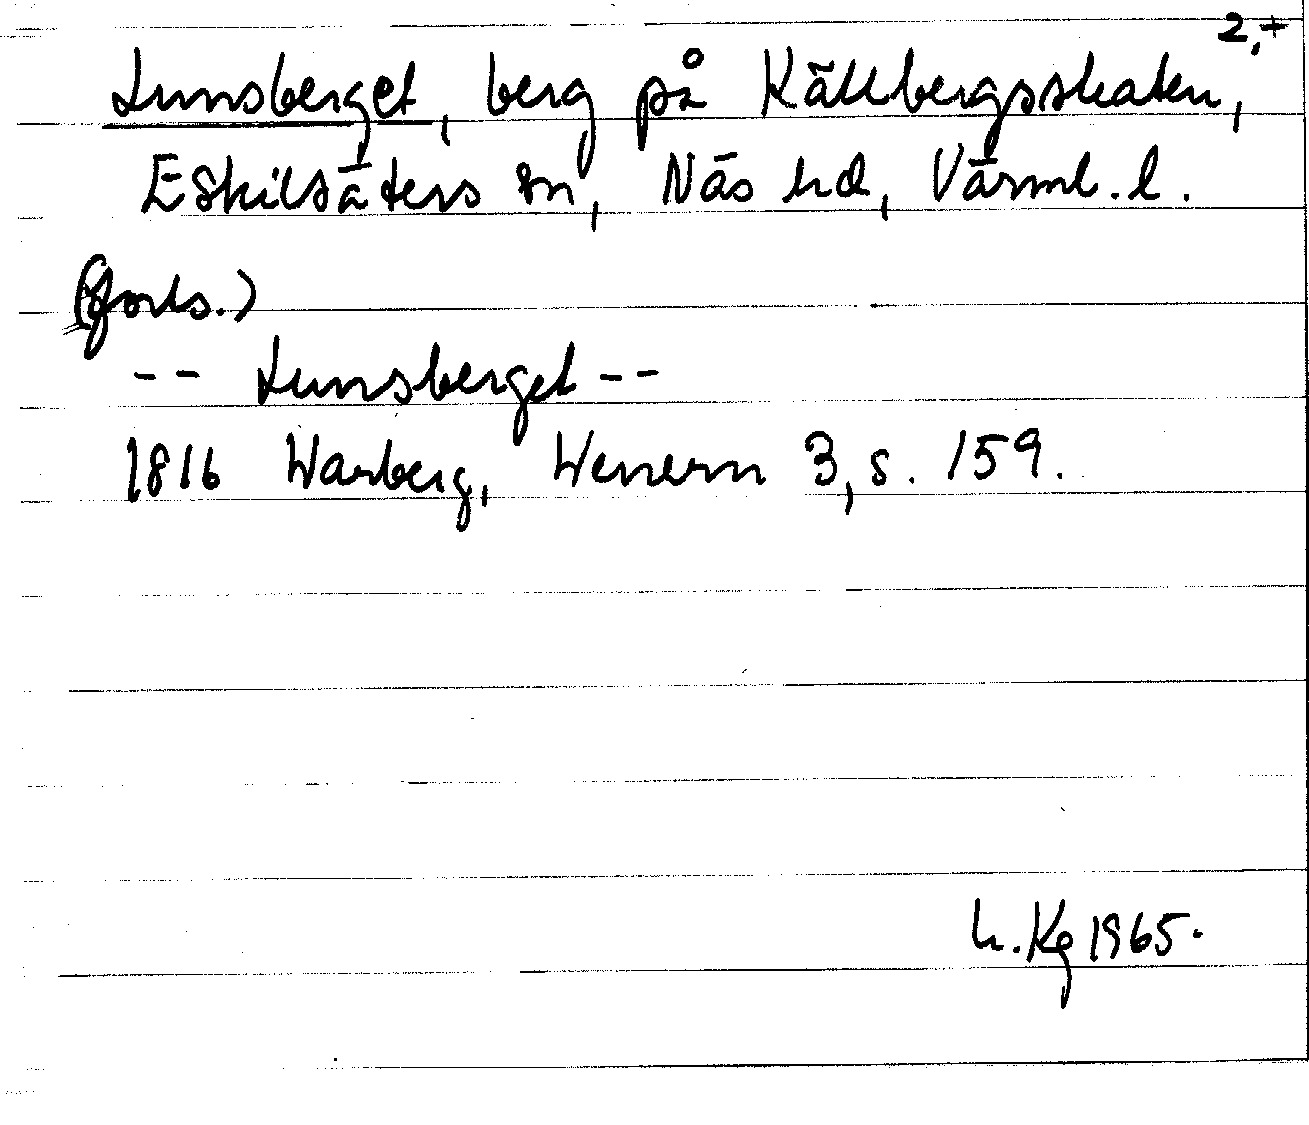 2,+
Lunsberget, berg på Källbergsskaten,
Eskilsäters sn, Näs hd, Värml. l.
(forts.)
-- Lunsberget --
1816 Warberg, Wenern 3, s. 159.
h. Kg 1965.